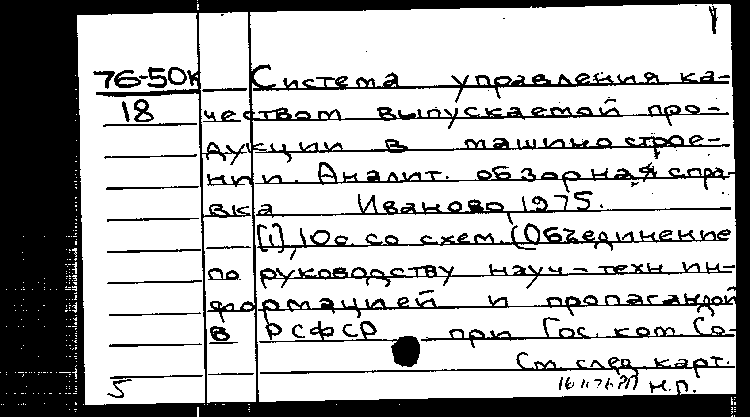 76-50к Система управления ка-
18 чеством выпускаемой про-
дукции в машинострое-
нии. Аналит. обзорная спра-
вка Иваново, 1975.
[1], 10с. со схем. (Объединение
по руководству науч-техн ин-
формацией и пропагандой
в РСФСР при Гос. ком. Со-
См. след. карт.
5 н.п.